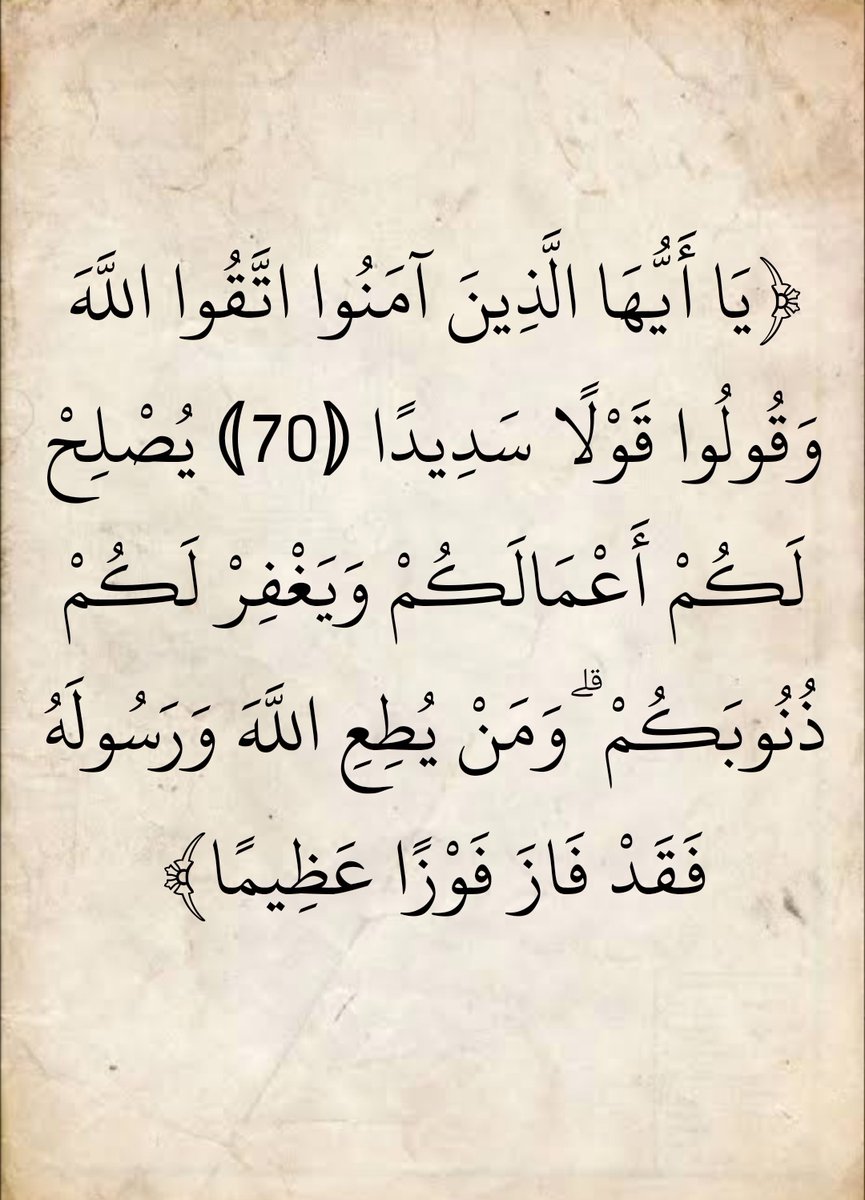 ﴿يَا أَيُّهَا الَّذِينَ آمَنُوا اتَّقُوا اللَّهَ
وَقُولُوا قَوْلًا سَدِيدًا (70) يُصْلِحْ
لَكُمْ أَعْمَالَكُمْ وَيَغْفِرْ لَكُمْ
ذُنُوبَكُمْ ۗ وَمَنْ يُطِعِ اللَّهَ وَرَسُولَهُ
فَقَدْ فَازَ فَوْزًا عَظِيمًا﴾